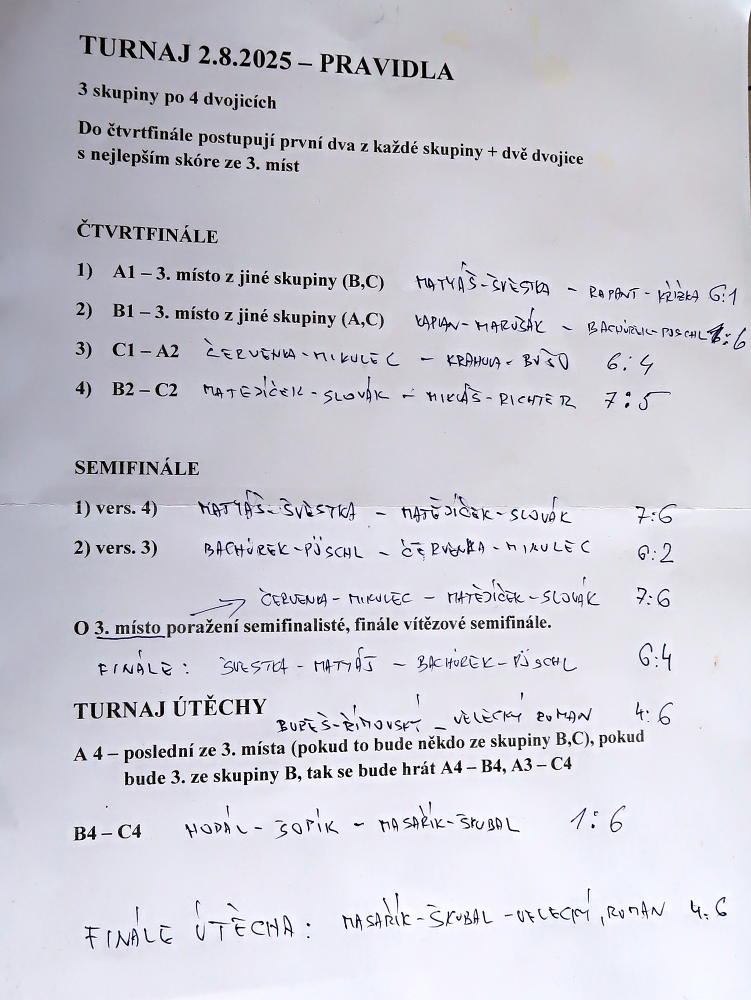 TURNAJ 2.8.2025 – PRAVIDLA
3 skupiny po 4 dvojicích
Do čtvrtfinále postupují první dva z každé skupiny + dvě dvojice
s nejlepším skóre ze 3. míst
ČTVRTFINÁLE
1) A1 – 3. místo z jiné skupiny (B,C) MATYÁŠ-ŠVESTKA – RAPANT-KŘÍŽKA 6:1
2) B1 – 3. místo z jiné skupiny (A,C) KAPIAN-MARUŠÁK – BACHŮREK-PÜSCHL :6
3) C1 – A2 ČERVENKA-MIKULEC – KRAHULA- 6:4
4) B2 – C2 MATĚJÍČEK-SLOVÁK – MIKLÁŠ-RICHTER 7:5
SEMIFINÁLE
1) vers. 4) MATYÁŠ-ŠVESTKA – MATĚJÍČEK-SLOVÁK 7:6
2) vers. 3) BACHŮREK-PÜSCHL – ČERVENKA-MIKULEC 6:2
ČERVENKA-MIKULEC – MATĚJÍČEK-SLOVÁK 7:6
O 3. místo poražení semifinalisté, finále vítězové semifinále.
FINÁLE: ŠVESTKA-MATYÁŠ – BACHŮREK-PÜSCHL 6:4
TURNAJ ÚTĚCHY
BUREŠ-ŘÍMOVSKÝ – VELECKÝ ROMAN 4:6
A 4 – poslední ze 3. místa (pokud to bude někdo ze skupiny B,C), pokud
bude 3. ze skupiny B, tak se bude hrát A4 – B4, A3 – C4
B4 – C4 HODÁL-ŠOPÍK – MASAŘÍK-ŠKUBAL 1:6
FINÁLE ÚTĚCHA: MASAŘÍK-ŠKUBAL -VELECKÝ, ROMAN 4:6